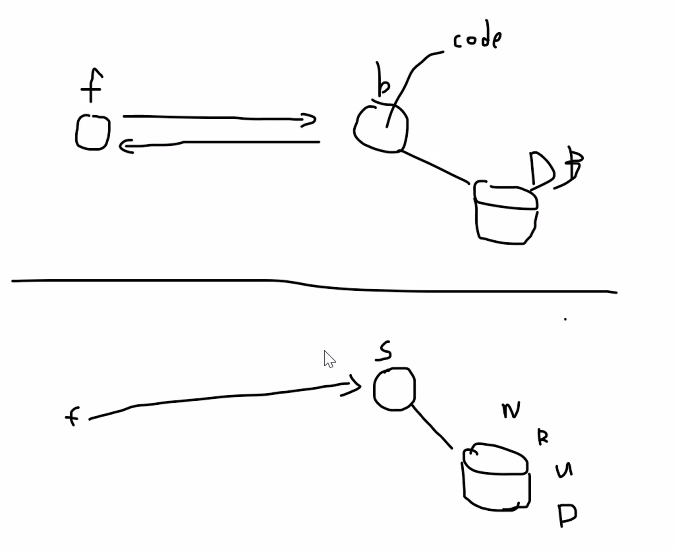 code
f
b
DB
S
f
N
R
U
D